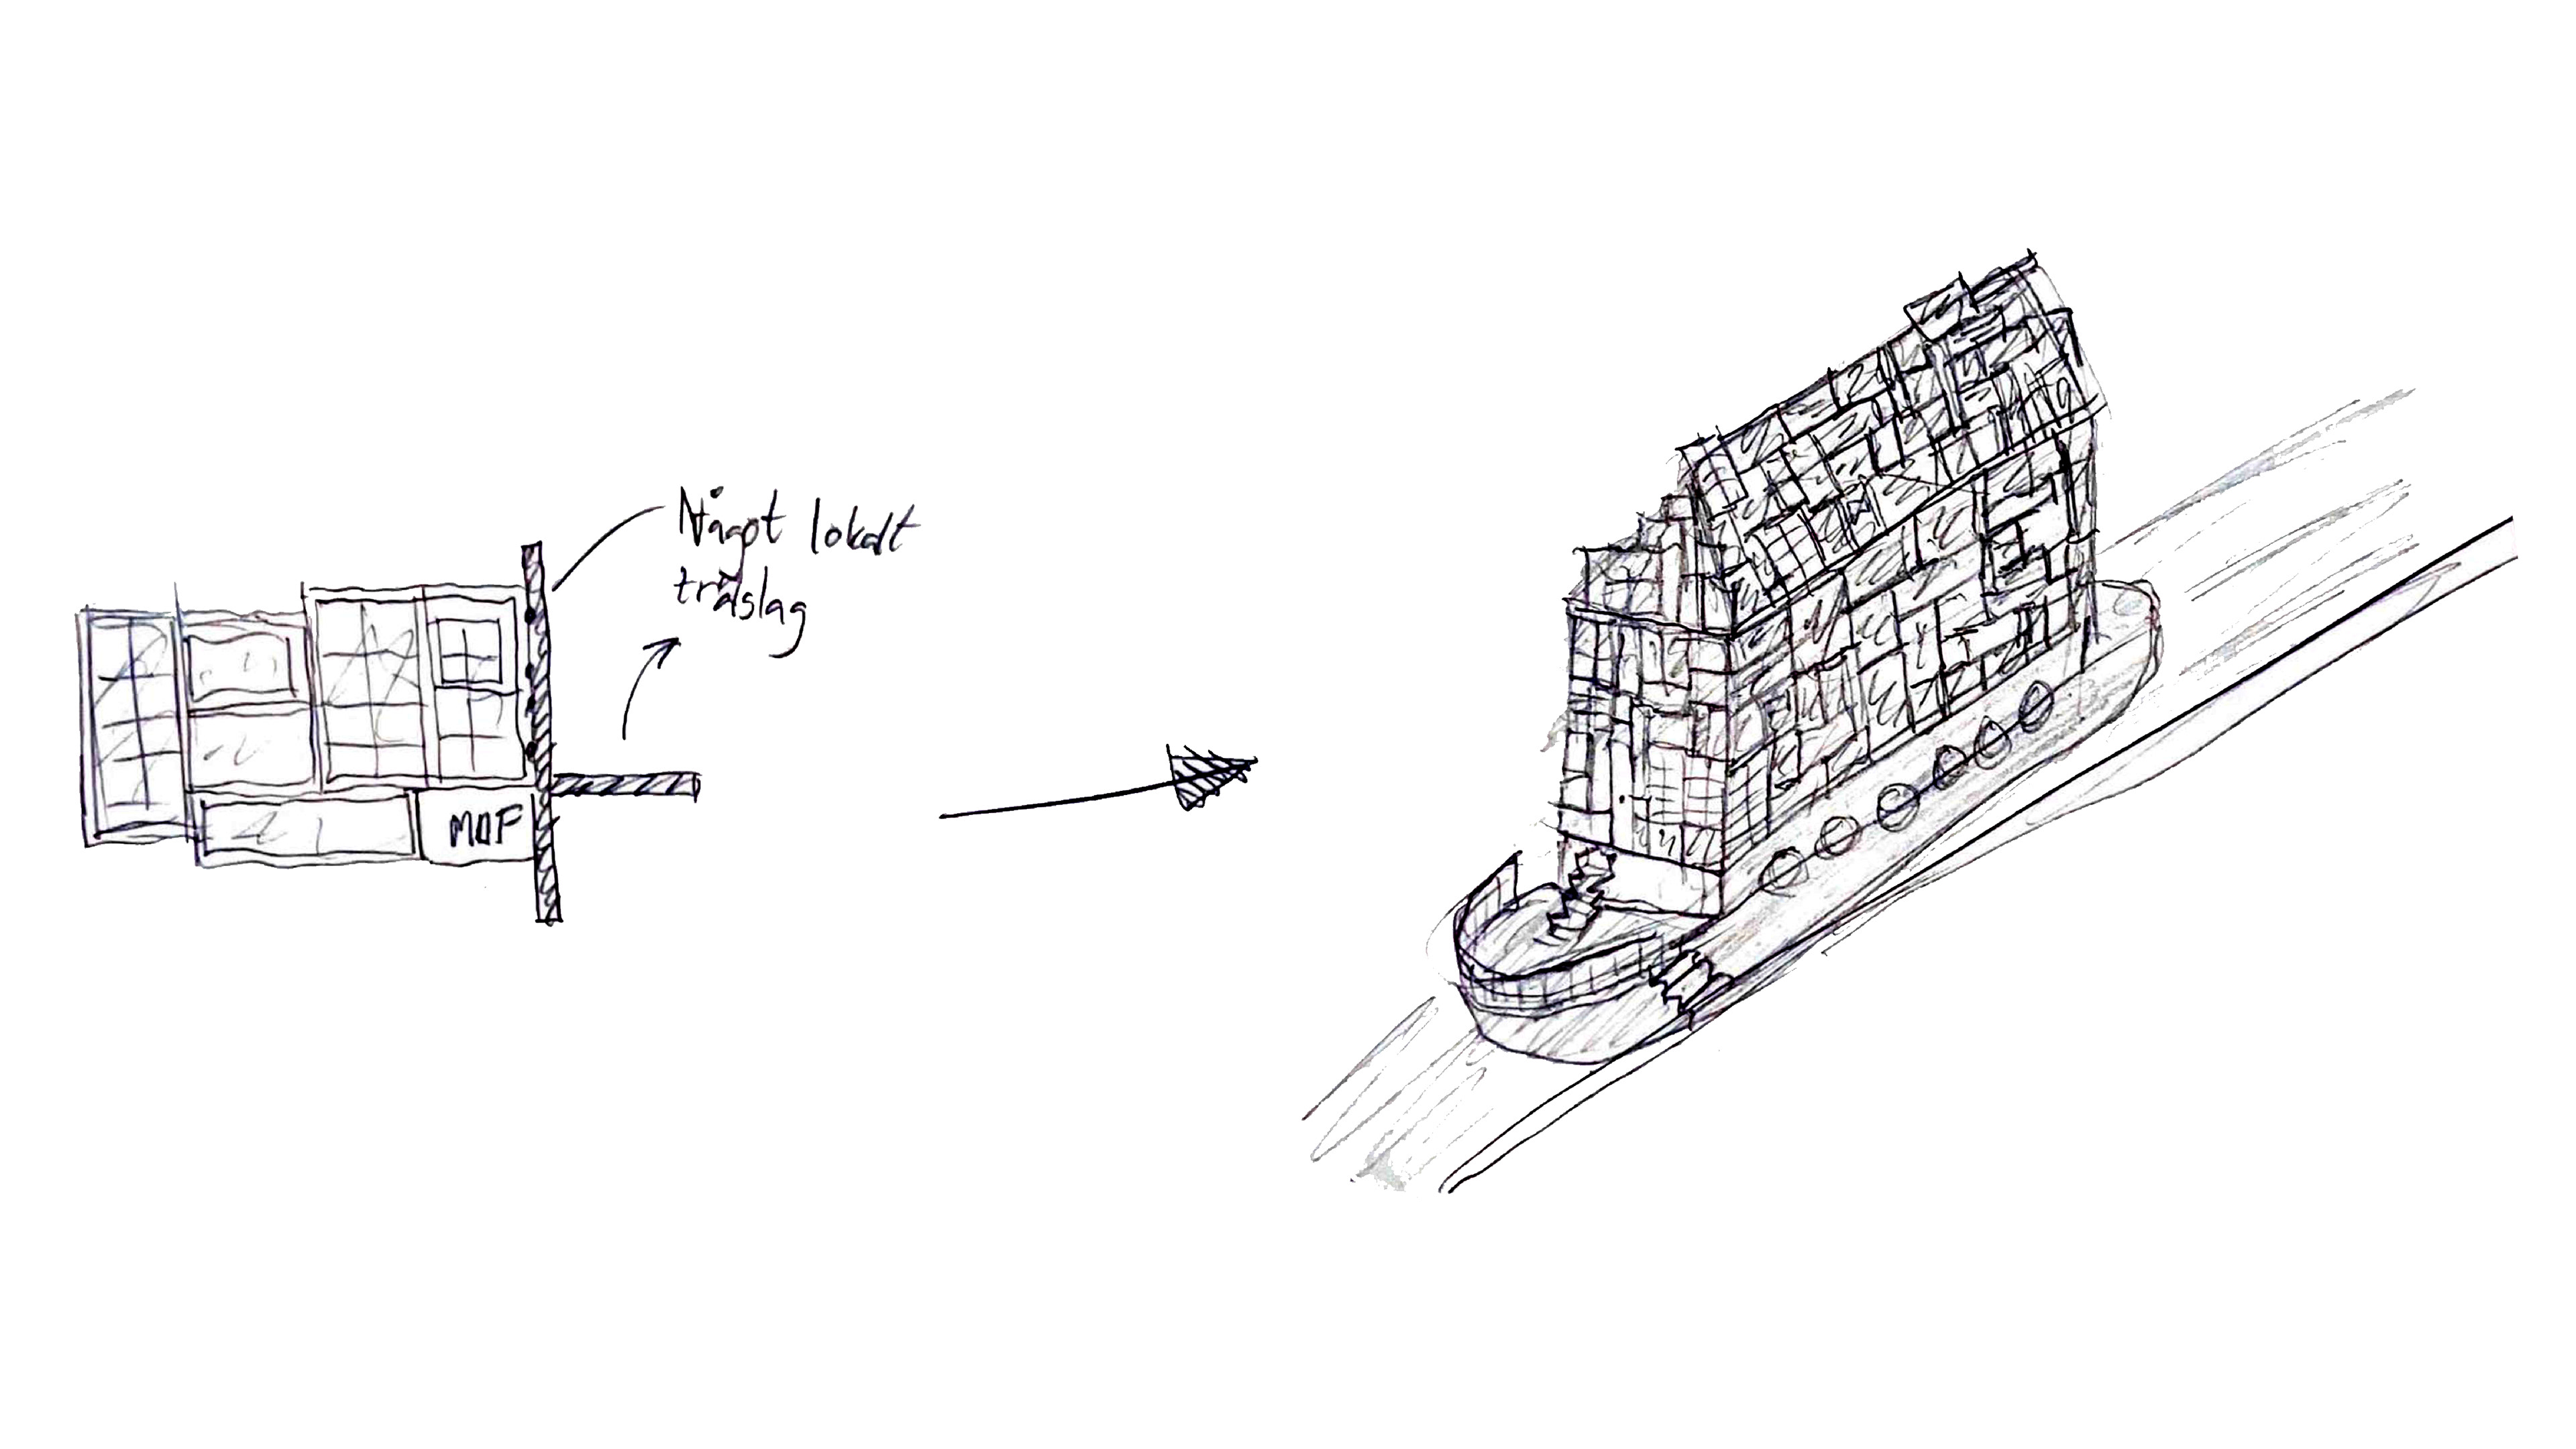 Något lokalt
träslag
MDF